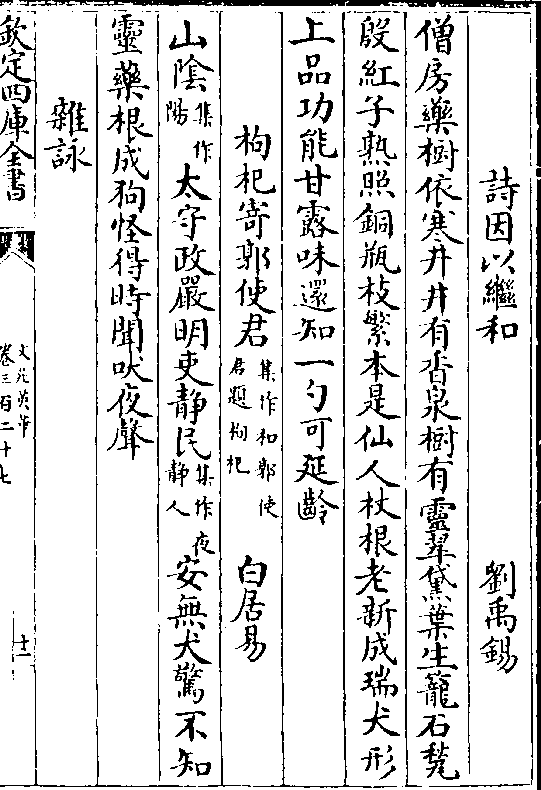 詩因以繼和 劉禹錫
僧房藥樹依寒井井有香泉樹有靈翠黛葉生籠石甃
殷紅子熟照銅瓶枝繁本是仙人杖根老新成瑞犬形
上品功能甘露味還知一勺可延齡
枸杞寄郭使君集作和郭使君題枸杞 白居易
山陰集作陽太守政嚴明吏靜民集作夜靜人安無犬驚不知
靈藥根成狗怪得時聞吠夜聲
雜詠
欽定四庫全書
文苑英華
卷三百二十七
十二